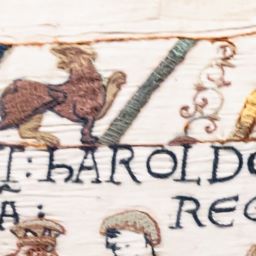 T : hAROLDO
A : REG